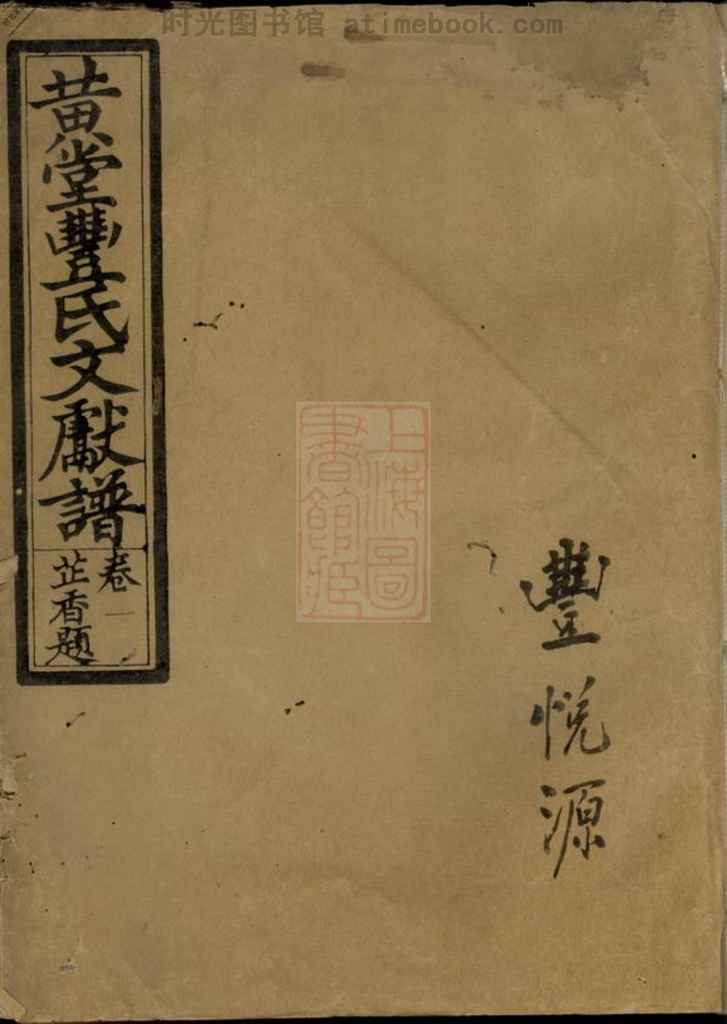 时光图书馆 atimebook.com
黄堂豐氏文獻譜
卷一
芷香題
上海圖
書館藏
豐悅源